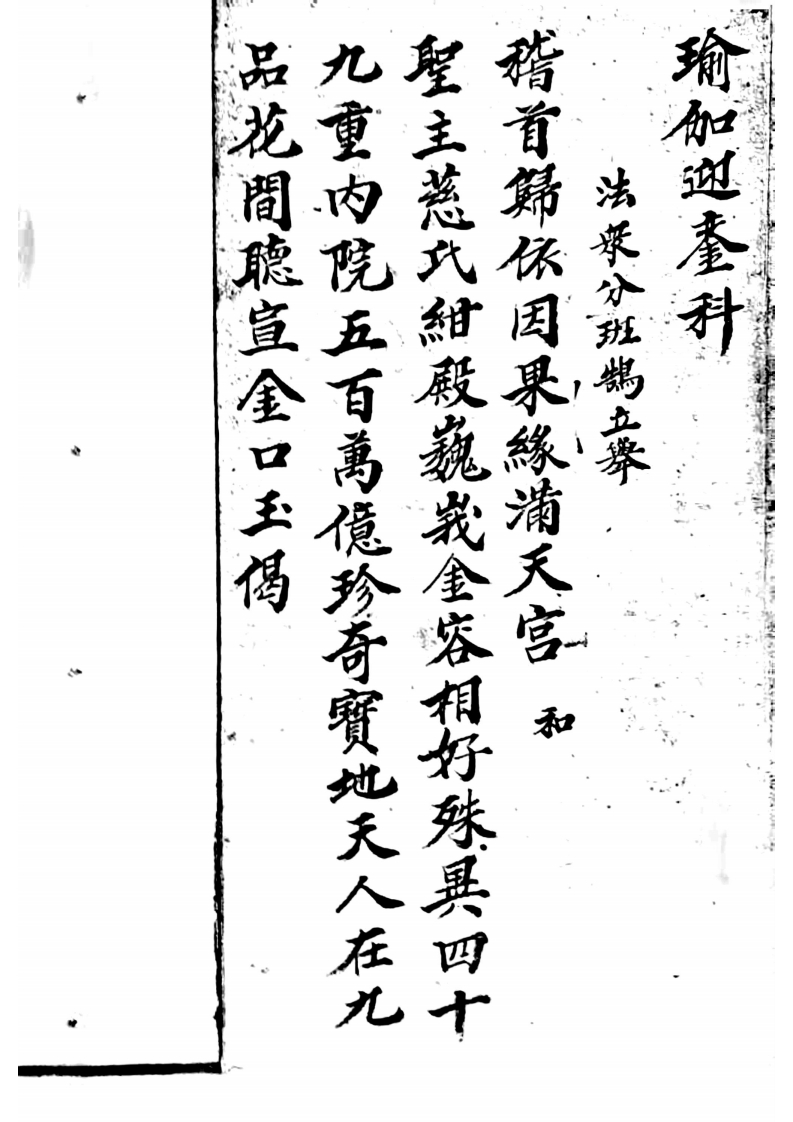 瑜伽迎鑾科
法衆分班鵠立舉
稽首歸依因果緣滿天宮 和
聖主慈氏紺殿巍峩金容相好殊異四十
九重内院五百萬億珍奇寶地天人在九
品花間聽宣金口玉偈